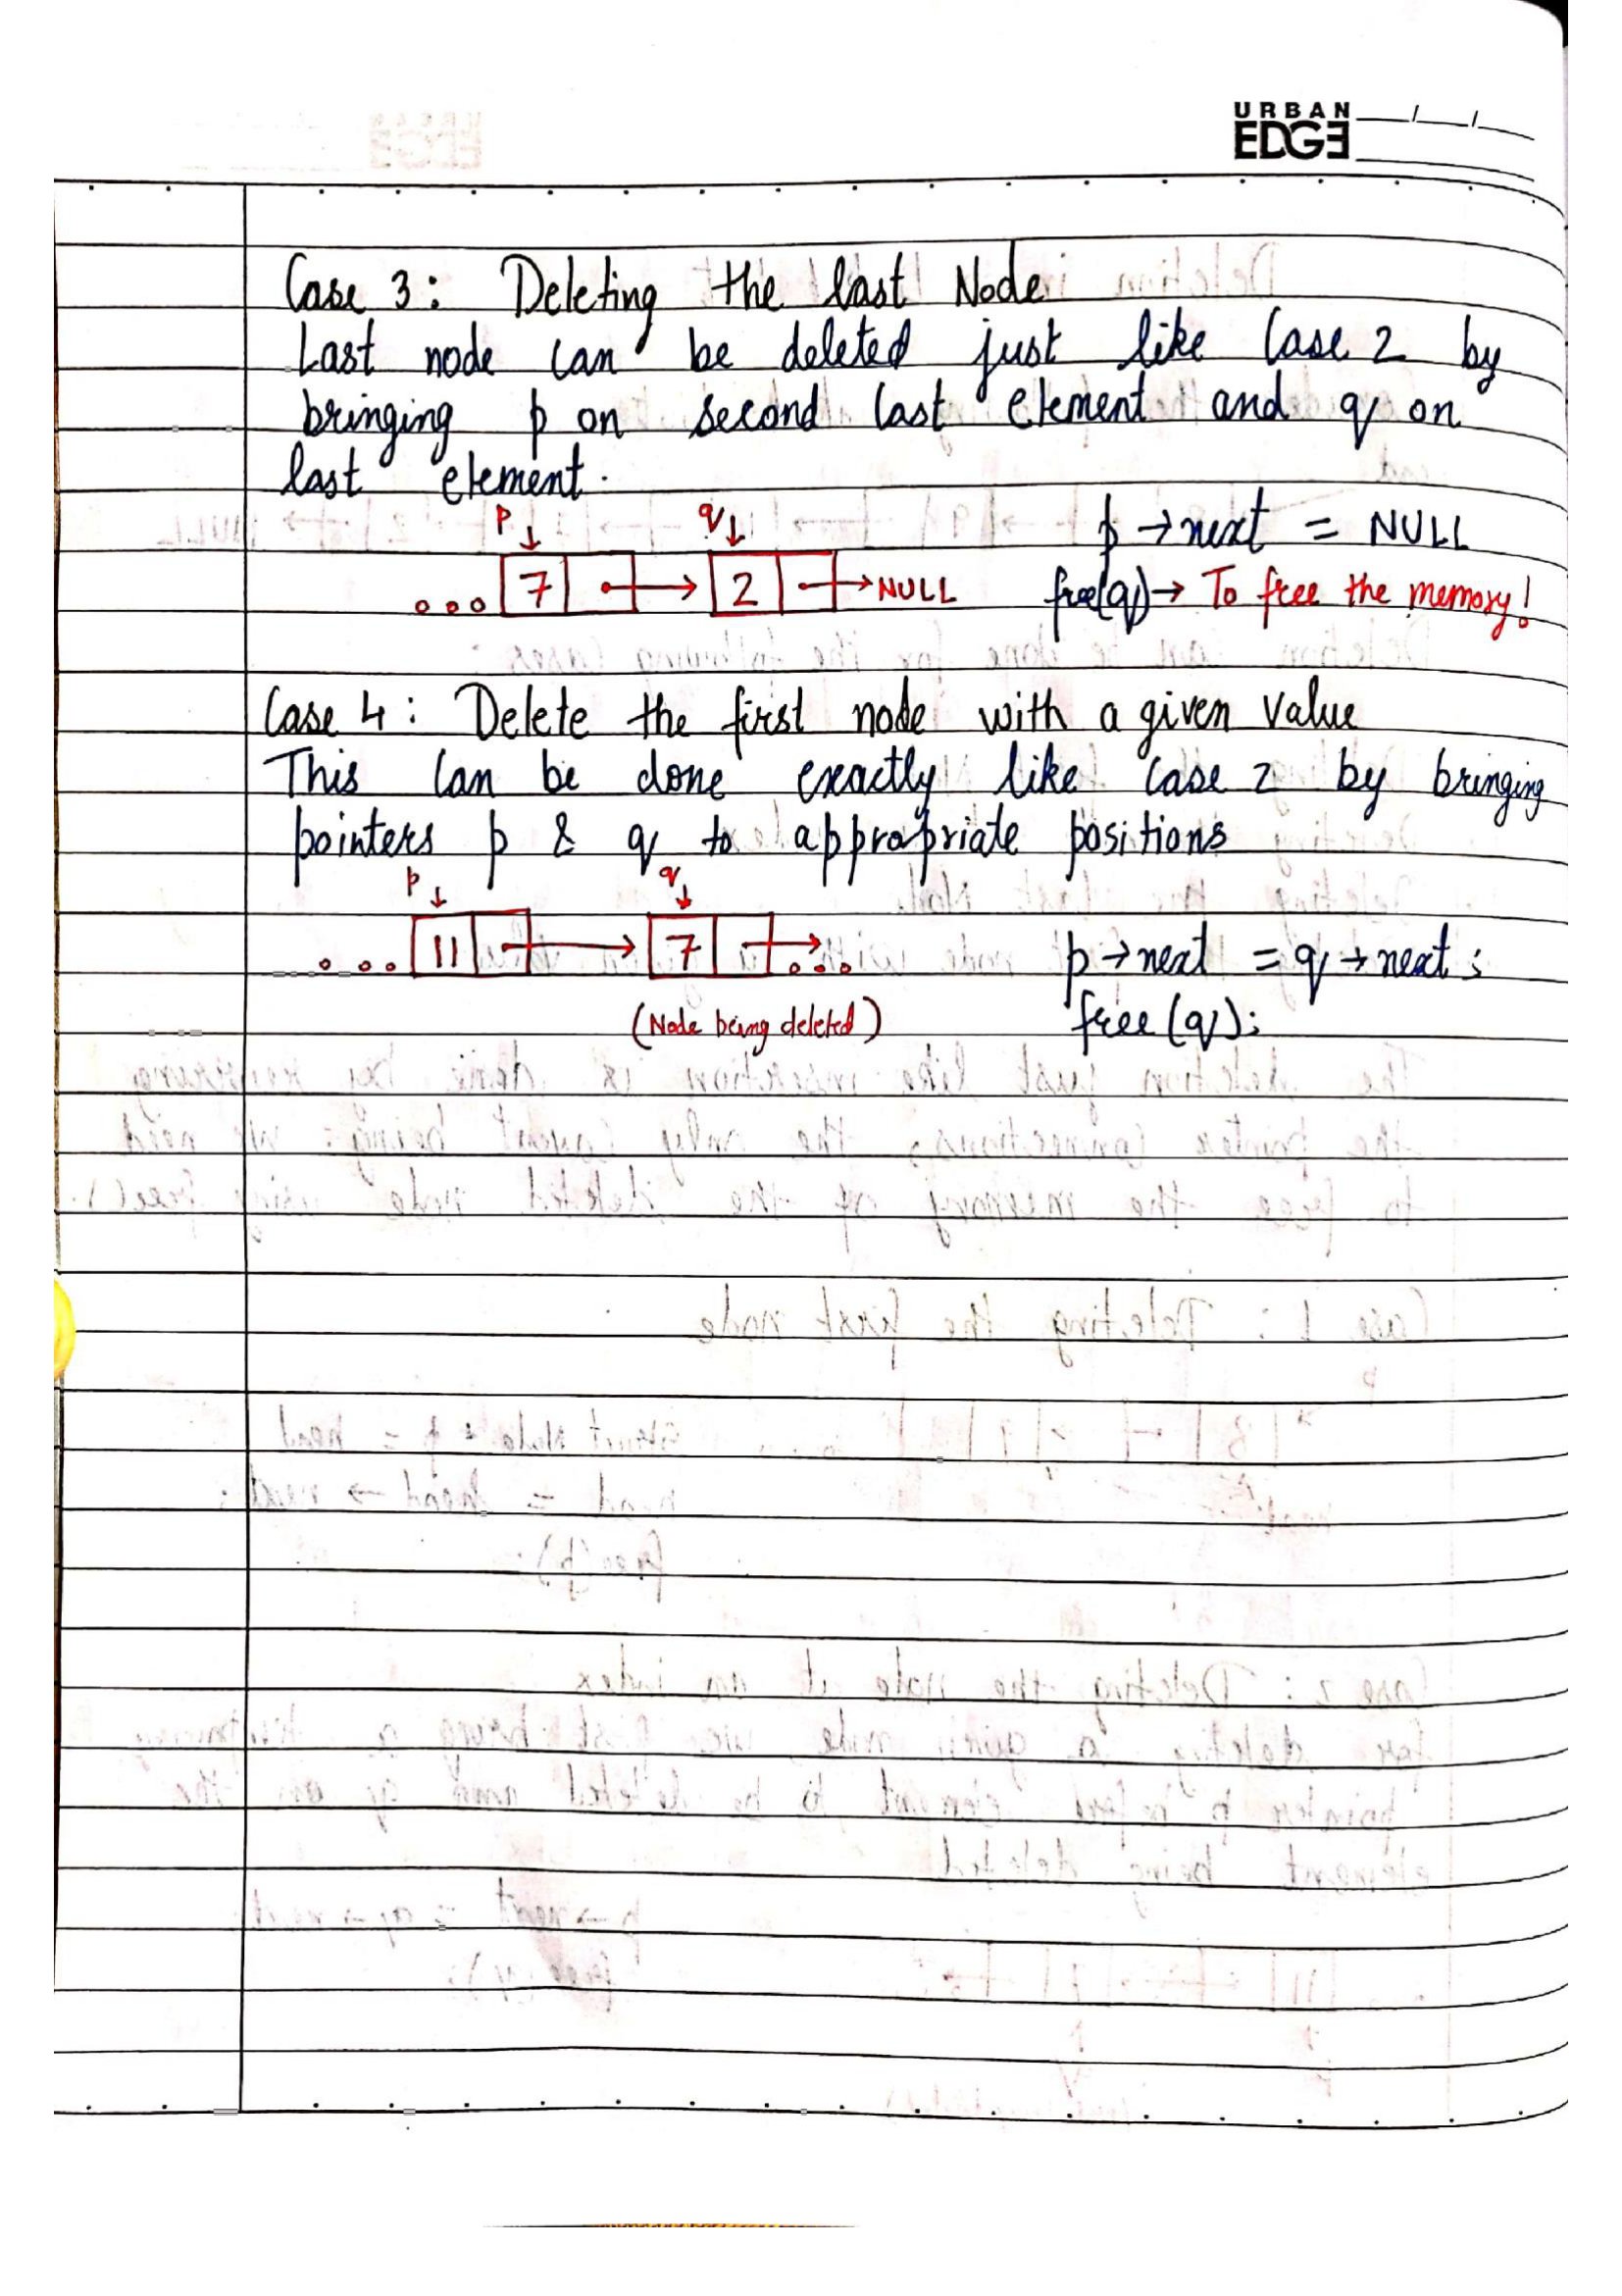 URBAN
EDGE
Case 3: Deleting the last Node
Last node can be deleted just like Case 2 by
bringing p on second last element and q on
last element.
p q
p → next = NULL
... 7 2 → NULL
free(q) → To free the memory!
Case 4: Delete the first node with a given value
This can be done exactly like case 2 by bringing
pointers p & q to appropriate positions
p q
... 11 7 ...
p → next = q → next ;
(Node being deleted)
free (q);